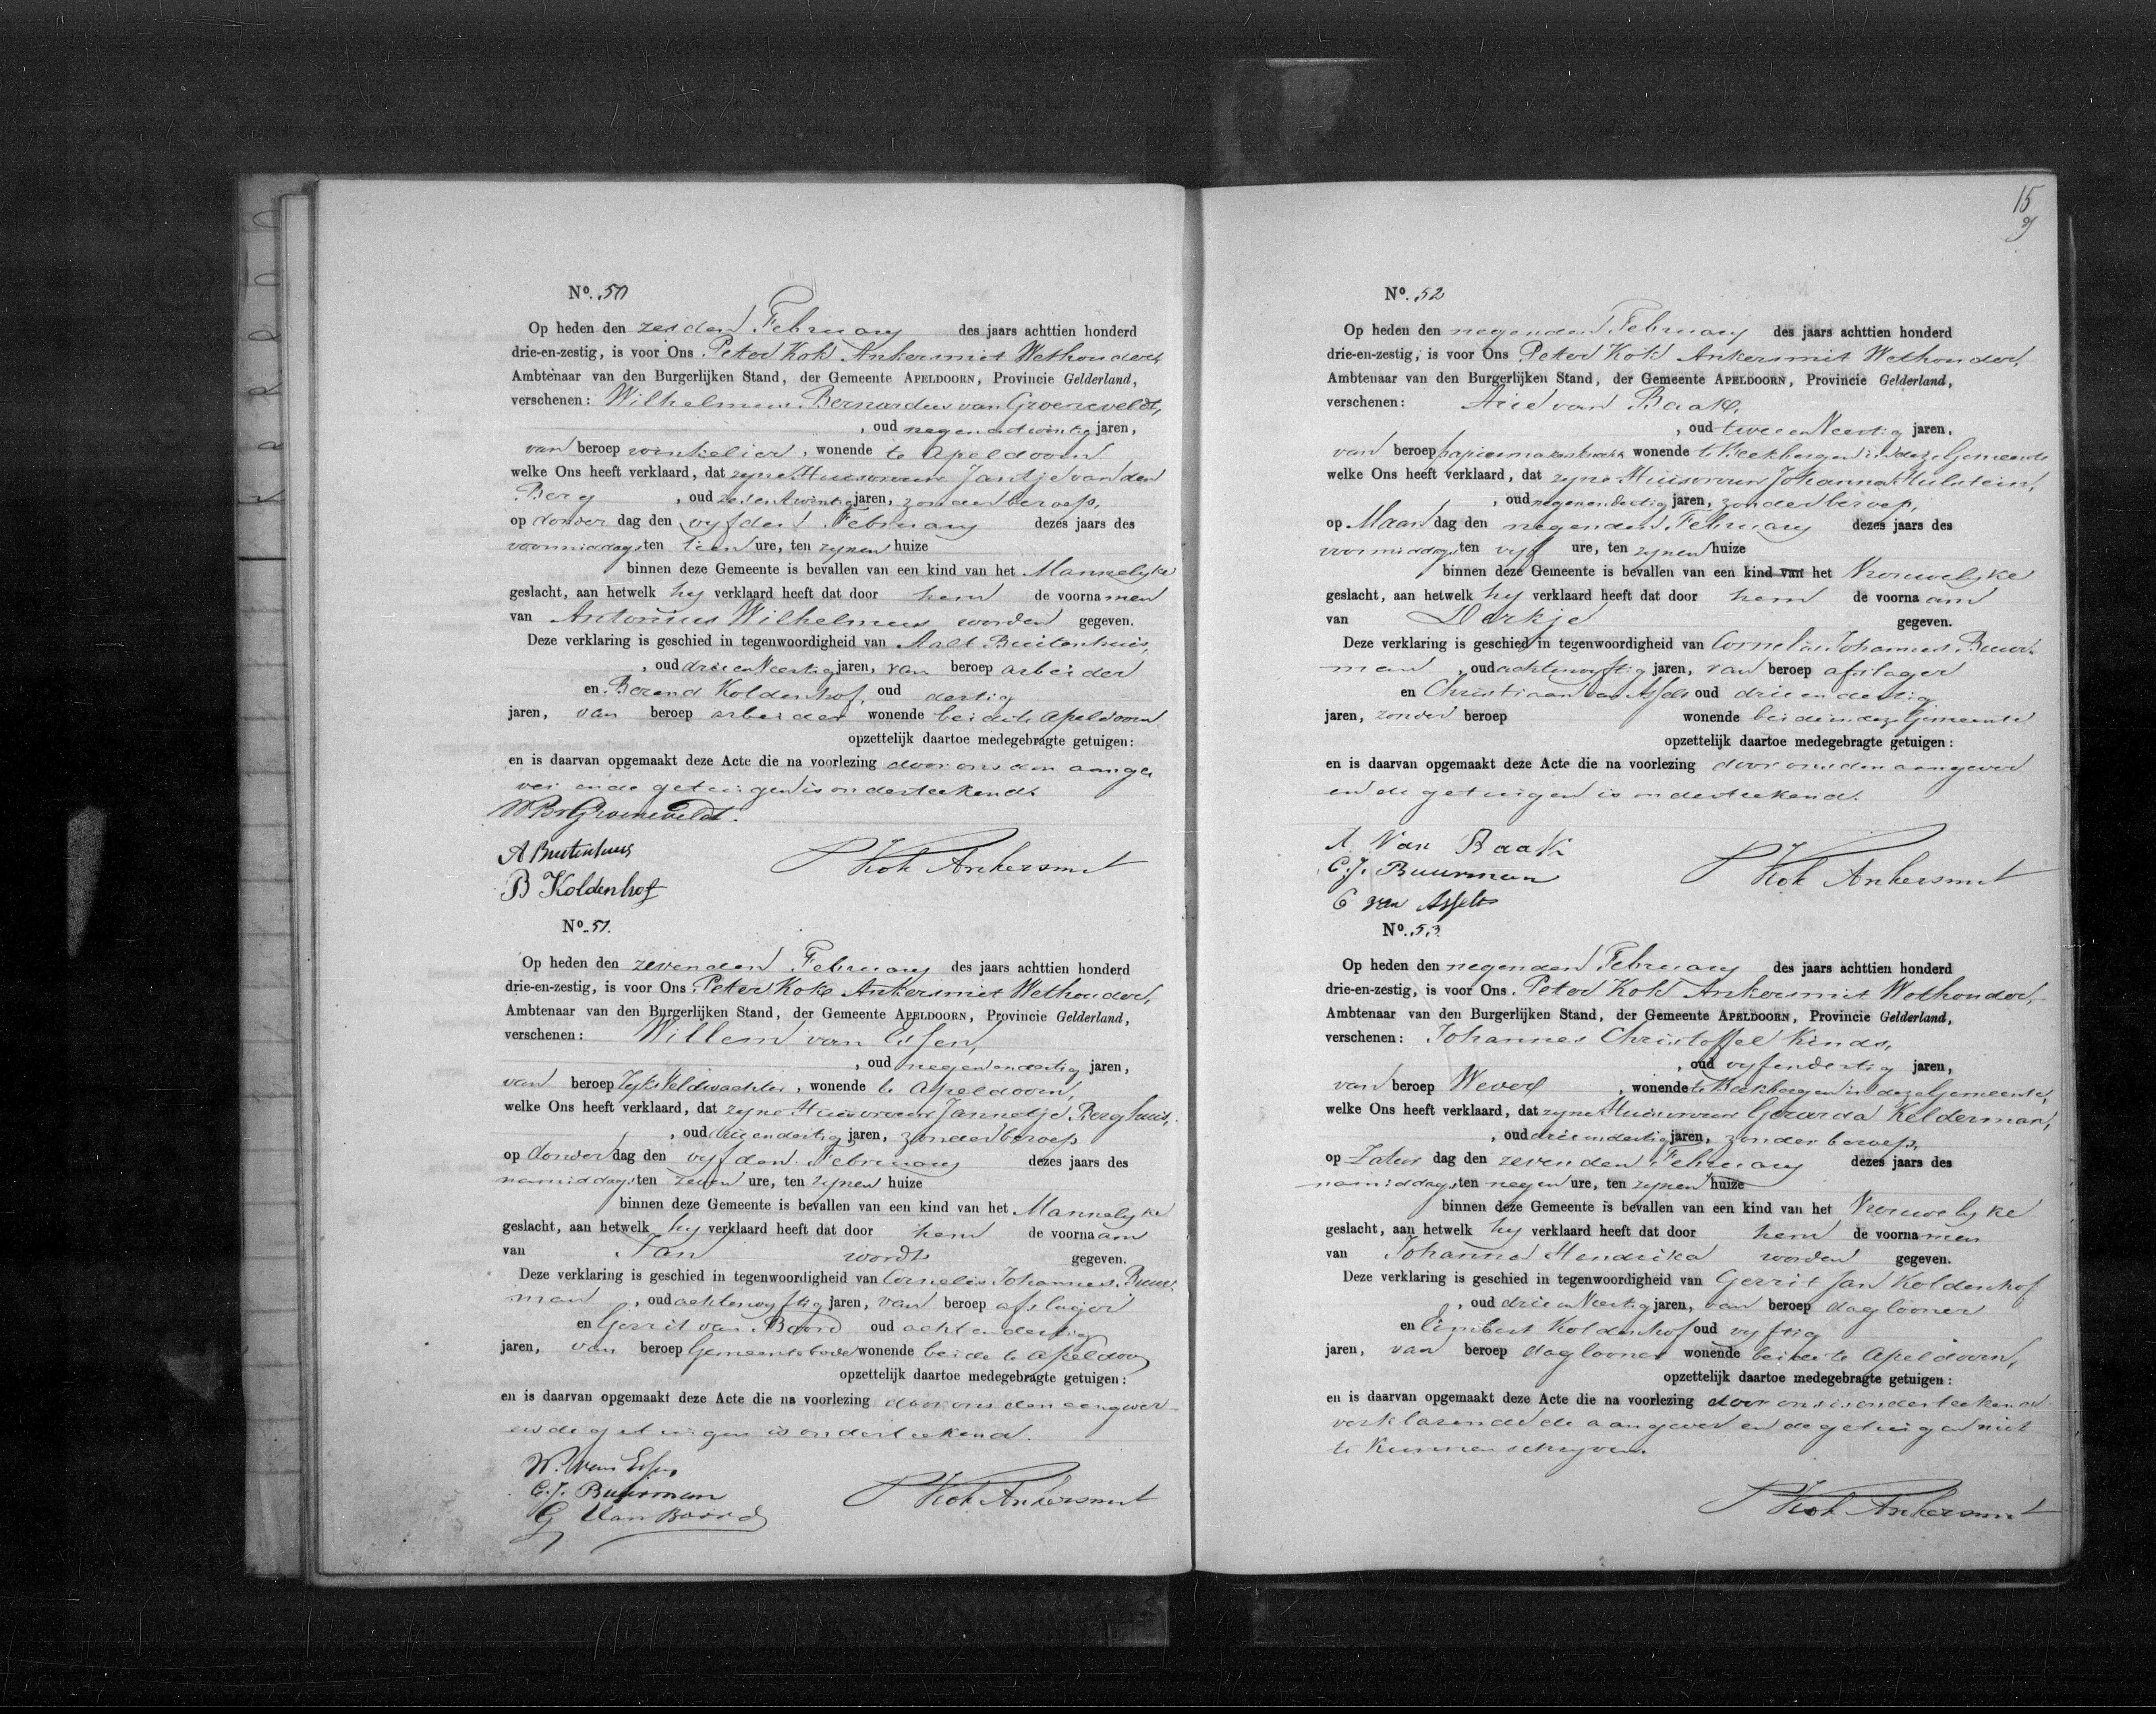 No. 50
Op heden den zesden February des jaars achttien honderd
drie-en-zestig, is voor Ons Peter Kok Ankersmit Wethouder,
Ambtenaar van den Burgerlijken Stand, der Gemeente APELDOORN, Provincie Gelderland,
verschenen: Wilhelmus Bernardus van Groeneveldt,
, oud negenendwintig jaren,
van beroep winkelier, wonende te Apeldoorn
welke Ons heeft verklaard, dat zyne Huisvrouw Jantje van den
Berg , oud zesentwintig jaren, zonder beroep,
op donder dag den vyfden February dezes jaars des
voormiddags ten tien ure, ten zynen huize
binnen deze Gemeente is bevallen van een kind van het Mannelyke
geslacht, aan hetwelk hy verklaard heeft dat door hem de voornamen
van Antonius Wilhelmus worden gegeven.
Deze verklaring is geschied in tegenwoordigheid van Aalt Buitenhuis,
, oud drieenveertig jaren, van beroep arbeider
en Berend Koldenhof, oud dertig
jaren, van beroep arbeider wonende beide te Apeldoorn
opzettelijk daartoe medegebragte getuigen:
en is daarvan opgemaakt deze Acte die na voorlezing door ons den aange
ver en de getuigen is onderteekend.
W B v Groeneveldt.
A Buitenhuis
B Koldenhof
P Kok Ankersmit
No. 51.
Op heden den zevenden February des jaars achttien honderd
drie-en-zestig, is voor Ons Peter Kok Ankersmit Wethouder,
Ambtenaar van den Burgerlijken Stand, der Gemeente APELDOORN, Provincie Gelderland,
verschenen: Willem van Essen,
, oud negenendertig jaren,
van beroep Ryksveldwachter, wonende te Apeldoorn,
welke Ons heeft verklaard, dat zyne Huisvrouw Jannetje Berghuis,
, oud drieendertig jaren, zonder beroep
op donder dag den vyfden February dezes jaars des
namiddags ten zeven ure, ten zynen huize
binnen deze Gemeente is bevallen van een kind van het Mannelyke
geslacht, aan hetwelk hy verklaard heeft dat door hem de voornaam
van Jan wordt gegeven.
Deze verklaring is geschied in tegenwoordigheid van Cornelis Johannes Buur-
man , oud achtenvyftig jaren, van beroep afslager
en Gerrit van Boord oud achtendertig
jaren, van beroep Gemeentebode wonende beide te Apeldoorn
opzettelijk daartoe medegebragte getuigen:
en is daarvan opgemaakt deze Acte die na voorlezing door ons den aangever
en de getuigen is onderteekend.
W. van Essen
C. J. Buurman
G van Boord
P Kok Ankersmit
15
No. 52
Op heden den negenden February des jaars achttien honderd
drie-en-zestig, is voor Ons Peter Kok Ankersmit Wethouder,
Ambtenaar van den Burgerlijken Stand, der Gemeente APELDOORN, Provincie Gelderland,
verschenen: Arie van Baak,
, oud tweeenveertig jaren,
van beroep papiermakersknecht wonende te Beekbergen in deze Gemeente
welke Ons heeft verklaard, dat zyne Huisvrouw Johanna Hulstein,
, oud negenendertig jaren, zonder beroep,
op Maan dag den negenden February dezes jaars des
voormiddags ten vyf ure, ten zynen huize
binnen deze Gemeente is bevallen van een kind van het Vrouwelyke
geslacht, aan hetwelk hy verklaard heeft dat door hem de voornaam
van Derkje gegeven.
Deze verklaring is geschied in tegenwoordigheid van Cornelis Johannes Buur-
man , oud achtenvyftig jaren, van beroep afslager
en Christiaan van Asselt oud drieendertig
jaren, zonder beroep wonende beide in deze Gemeente
opzettelijk daartoe medegebragte getuigen:
en is daarvan opgemaakt deze Acte die na voorlezing door ons den aangever
en de getuigen is onderteekend.
A Van Baak
C. J. Buurman
C van Asselt
P Kok Ankersmit
No. 53.
Op heden den negenden February des jaars achttien honderd
drie-en-zestig, is voor Ons Peter Kok Ankersmit Wethouder,
Ambtenaar van den Burgerlijken Stand, der Gemeente APELDOORN, Provincie Gelderland,
verschenen: Johannes Christoffel Kinds,
, oud vyfendertig jaren,
van beroep Wever , wonende te Beekbergen in deze Gemeente,
welke Ons heeft verklaard, dat zyne Huisvrouw Gerarda Kelderman,
, oud drieendertig jaren, zonder beroep,
op Zatur dag den zevenden February dezes jaars des
namiddags ten negen ure, ten zynen huize
binnen deze Gemeente is bevallen van een kind van het Vrouwelyke
geslacht, aan hetwelk hy verklaard heeft dat door hem de voornamen
van Johanna Hendrika worden gegeven.
Deze verklaring is geschied in tegenwoordigheid van Gerrit Jan Koldenhof
, oud drieenveertig jaren, van beroep daglooner
en Eimbert Koldenhof oud vyftig
jaren, van beroep daglooner wonende beide te Apeldoorn,
opzettelijk daartoe medegebragte getuigen:
en is daarvan opgemaakt deze Acte die na voorlezing door ons is onderteekend
verklarende de aangever en de getuigen niet
te kunnen schryven.
P Kok Ankersmit